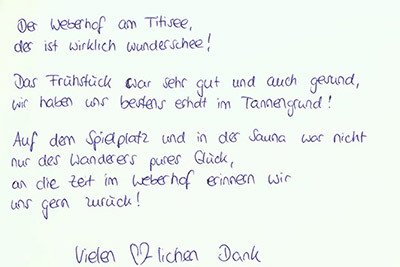 Der Weberhof am Titisee,
der ist wirklich wunderschee!
Das Frühstück war sehr gut und auch gesund,
wir haben uns bestens erholt im Tannengrund!
Auf dem Spielplatz und in der Sauna war nicht
nur des Wanderers pures Glück,
an die Zeit im Weberhof erinnern wir
uns gern zurück!
Vielen ♡lichen Dank